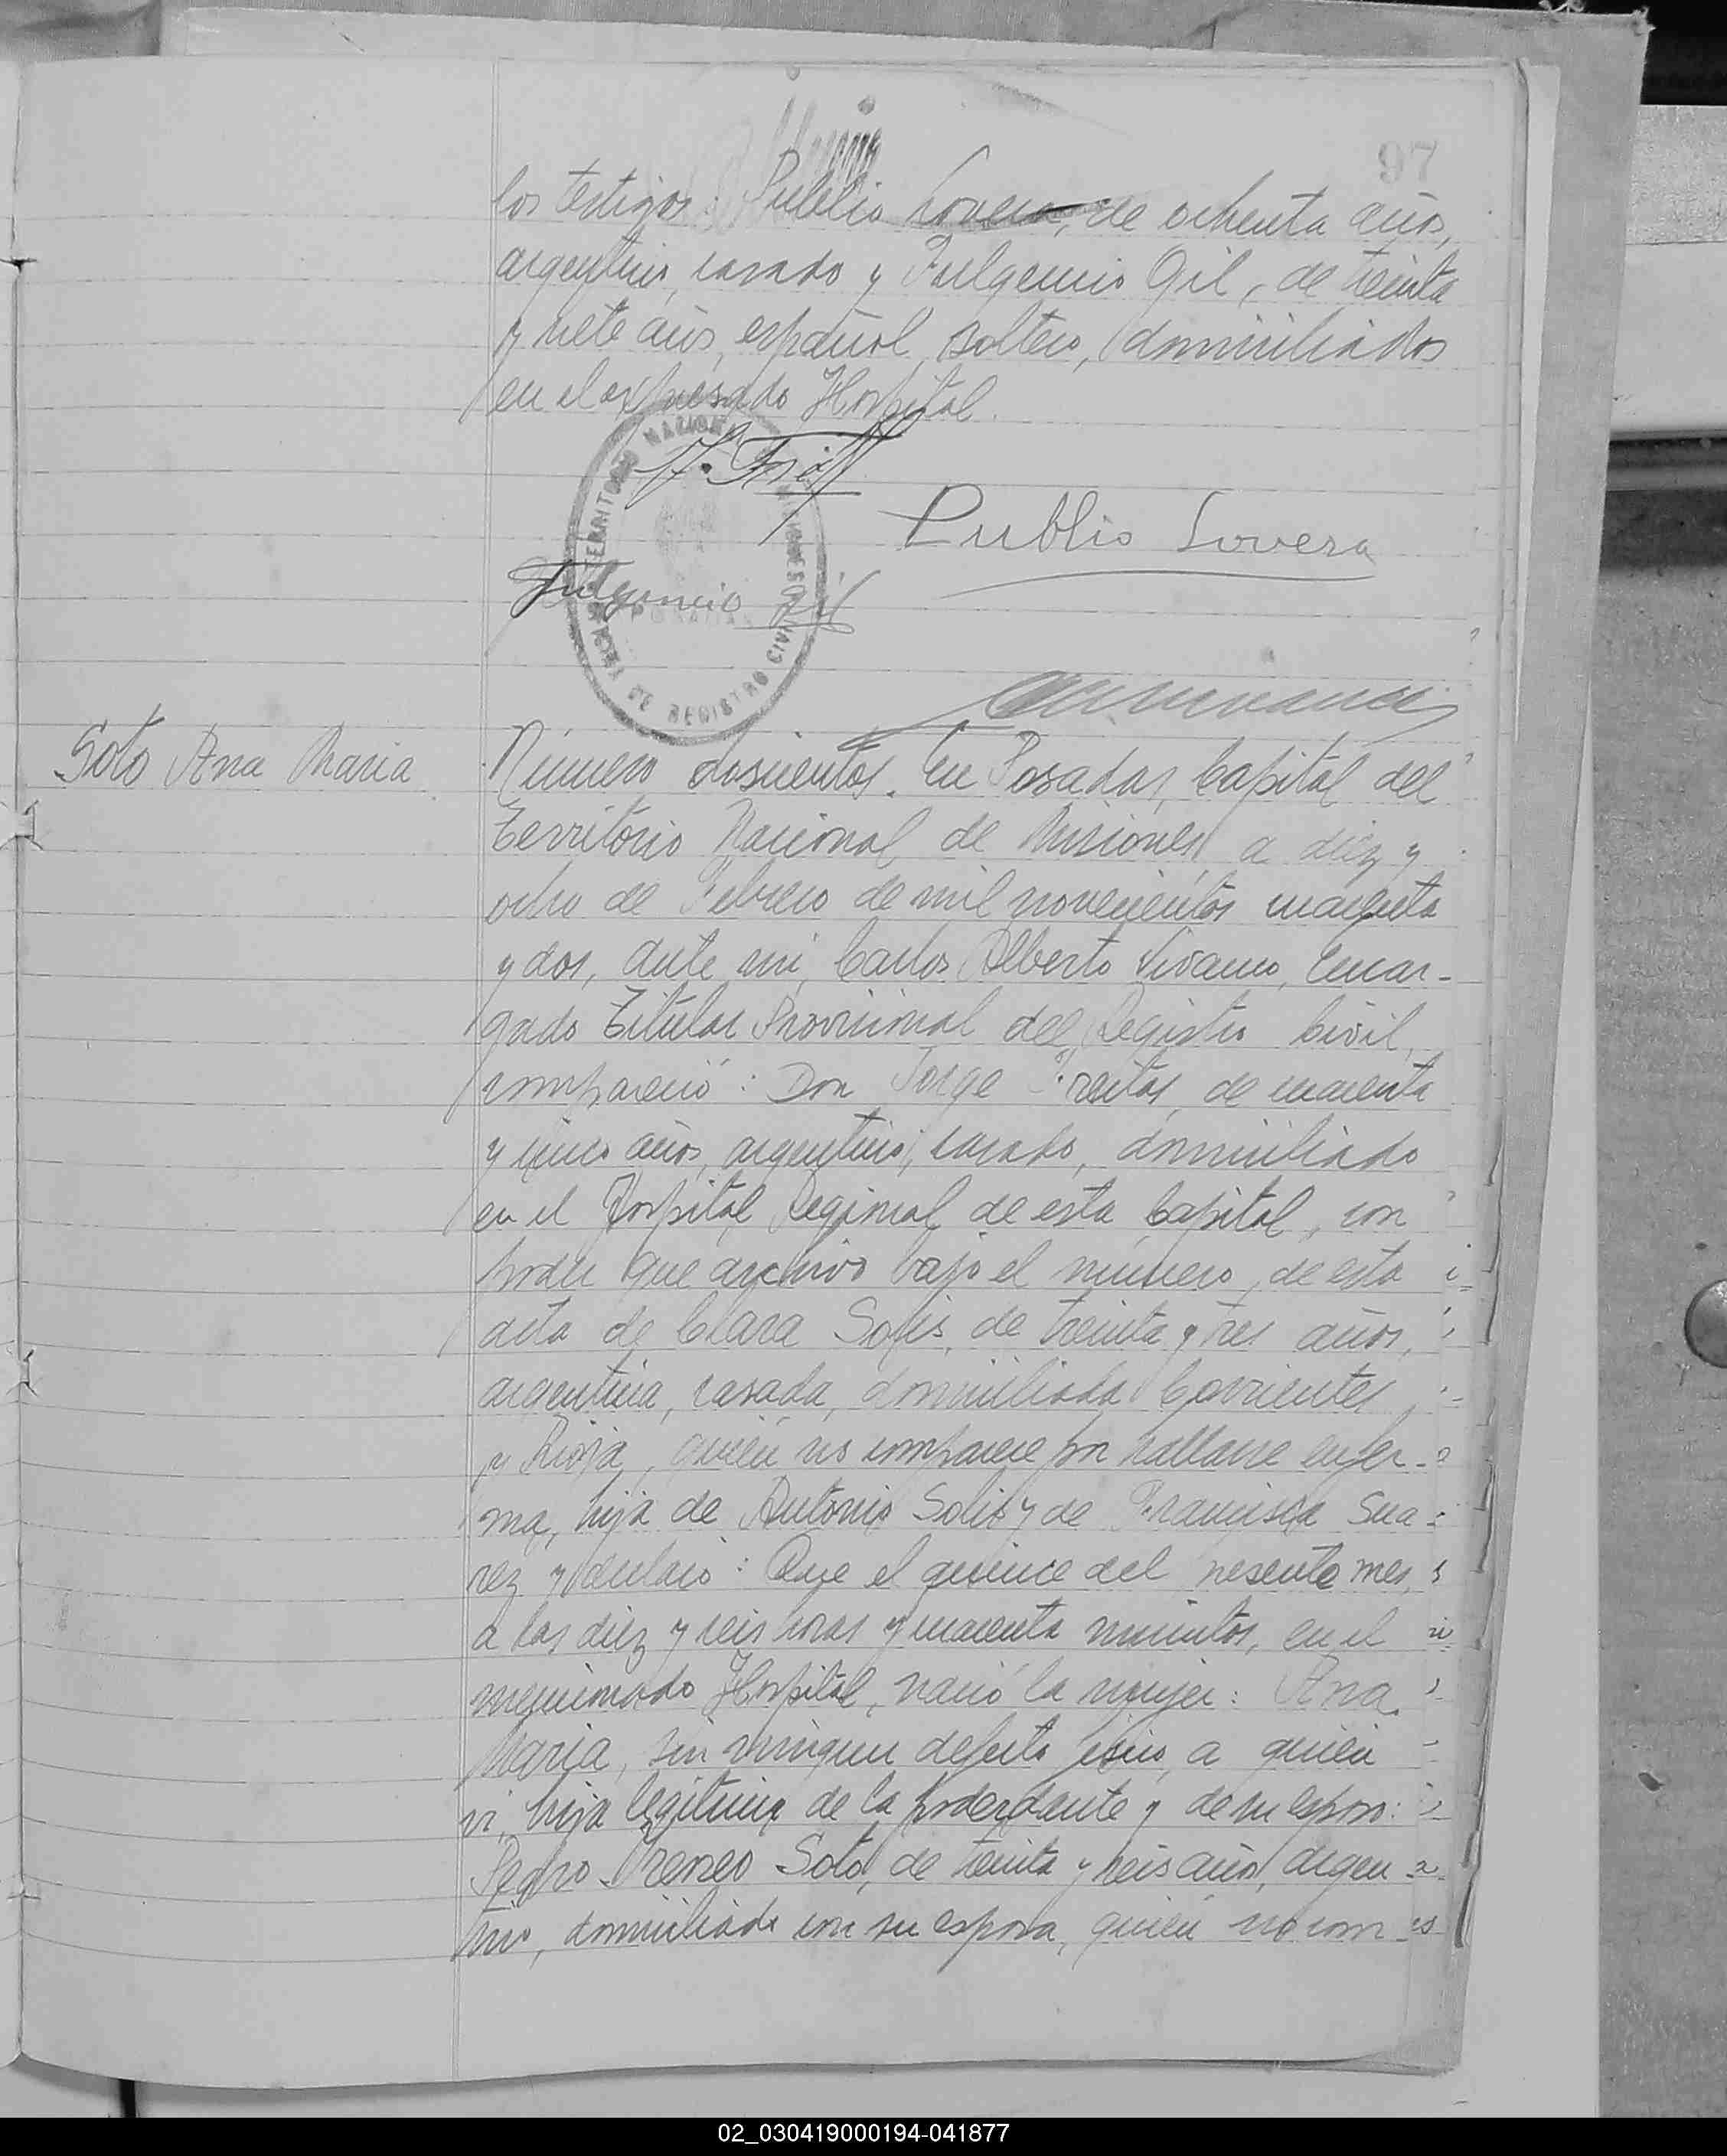 97
los testigos: Publio Lovera, de ochenta años,
argentino, casado y Fulgencio Gil, de treinta
y siete años, español, soltero, domiciliados
en el expresado Hospital.
Publio Lovera
Fulgencio Gil
TERRITORIO NACIONAL DE MISIONES
POSADAS
OFICINA DE REGISTRO CIVIL
Soto Ana Maria
Número doscientos. En Posadas, Capital del
Territorio Nacional de Misiones, a diez y
ocho de Febrero de mil novecientos cuarenta
y dos, ante mi, Carlos Alberto Vivanco, Encar-
gado Titular Provisional del Registro Civil,
compareció: Don Jorge Freitas, de cuarenta
y cinco años, argentino, casado, domiciliado
en el Hospital Regional de esta Capital, con
poder que archivo bajo el número de esta
acta de Clara Solis, de treinta y tres años,
argentina, casada, domiciliada Corrientes
y Rioja, quién no comparece por hallarse enfer-
ma, hija de Antonio Solis y de Francisca Sua-
rez y declaró: Que el quince del presente mes,
a las diez y seis horas y cuarenta minutos, en el
mencionado Hospital, nació la mujer: Ana
Maria, sin ningun defecto fisico, a quién
vi, hija legitima de la poderdante y de su esposo:
Pedro Ireneo Soto, de treinta y seis años, argen
tino, domiciliado con su esposa, quién no com
02_030419000194-041877